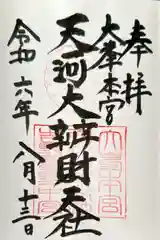 奉拝
大峯本宮
天河大辨財天社
令和六年八月十三日